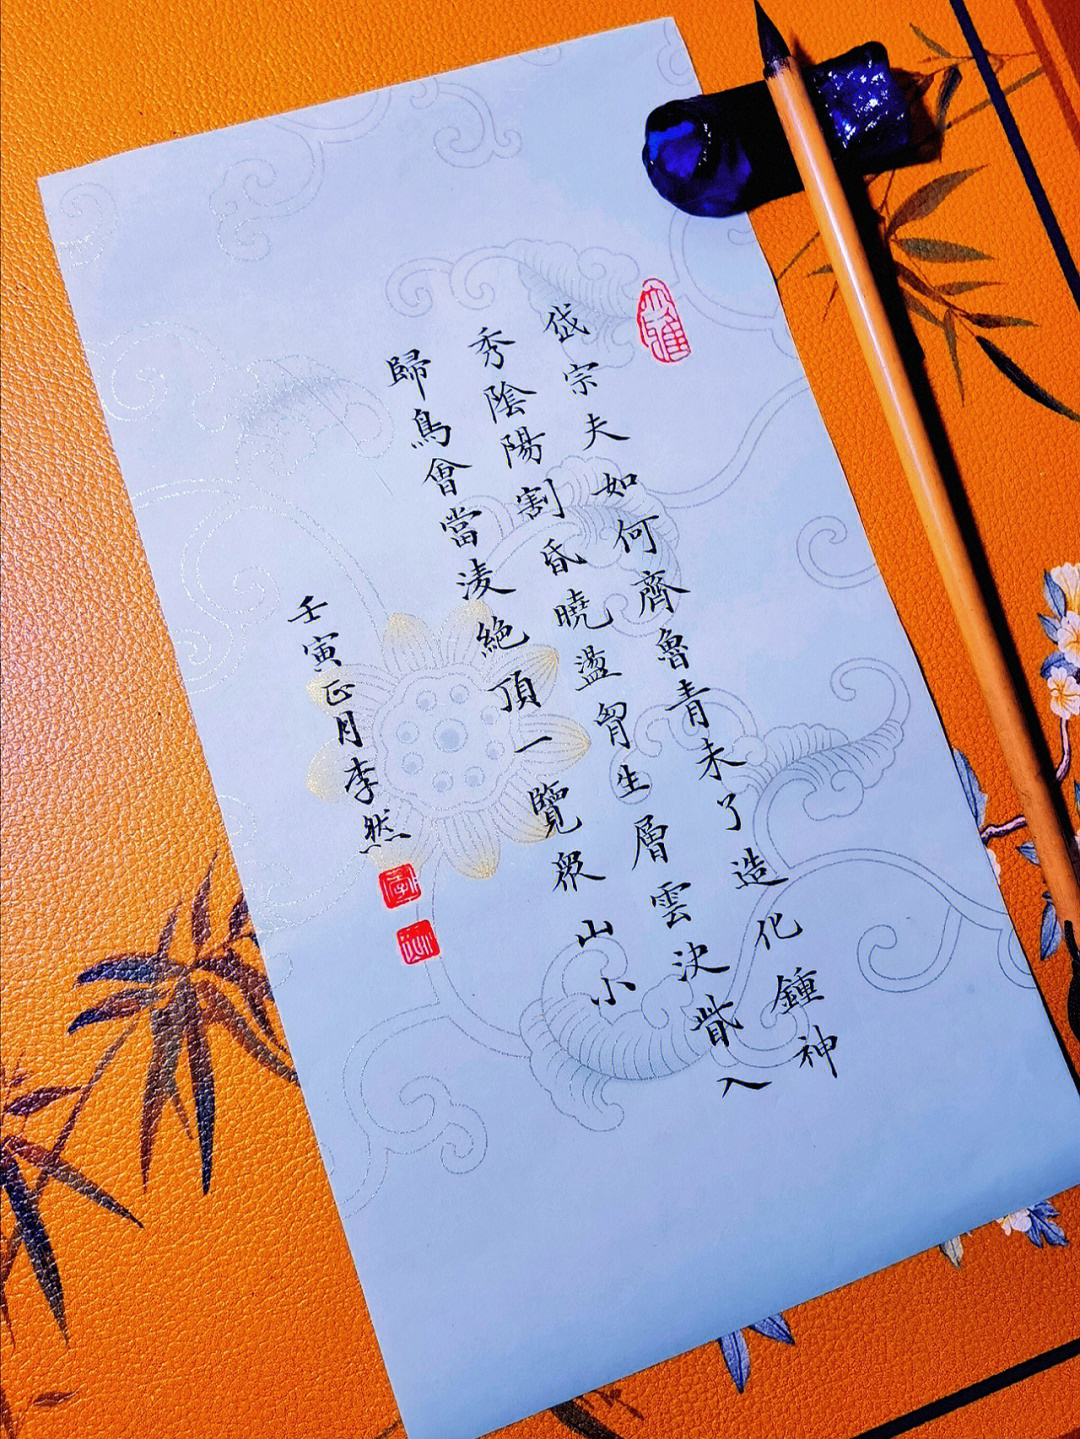 大雅
岱宗夫如何齊魯青未了造化鍾神
秀陰陽割昏曉盪胷生層雲決眥入
歸鳥會當凌絕頂一覽衆山小
壬寅正月李然
李